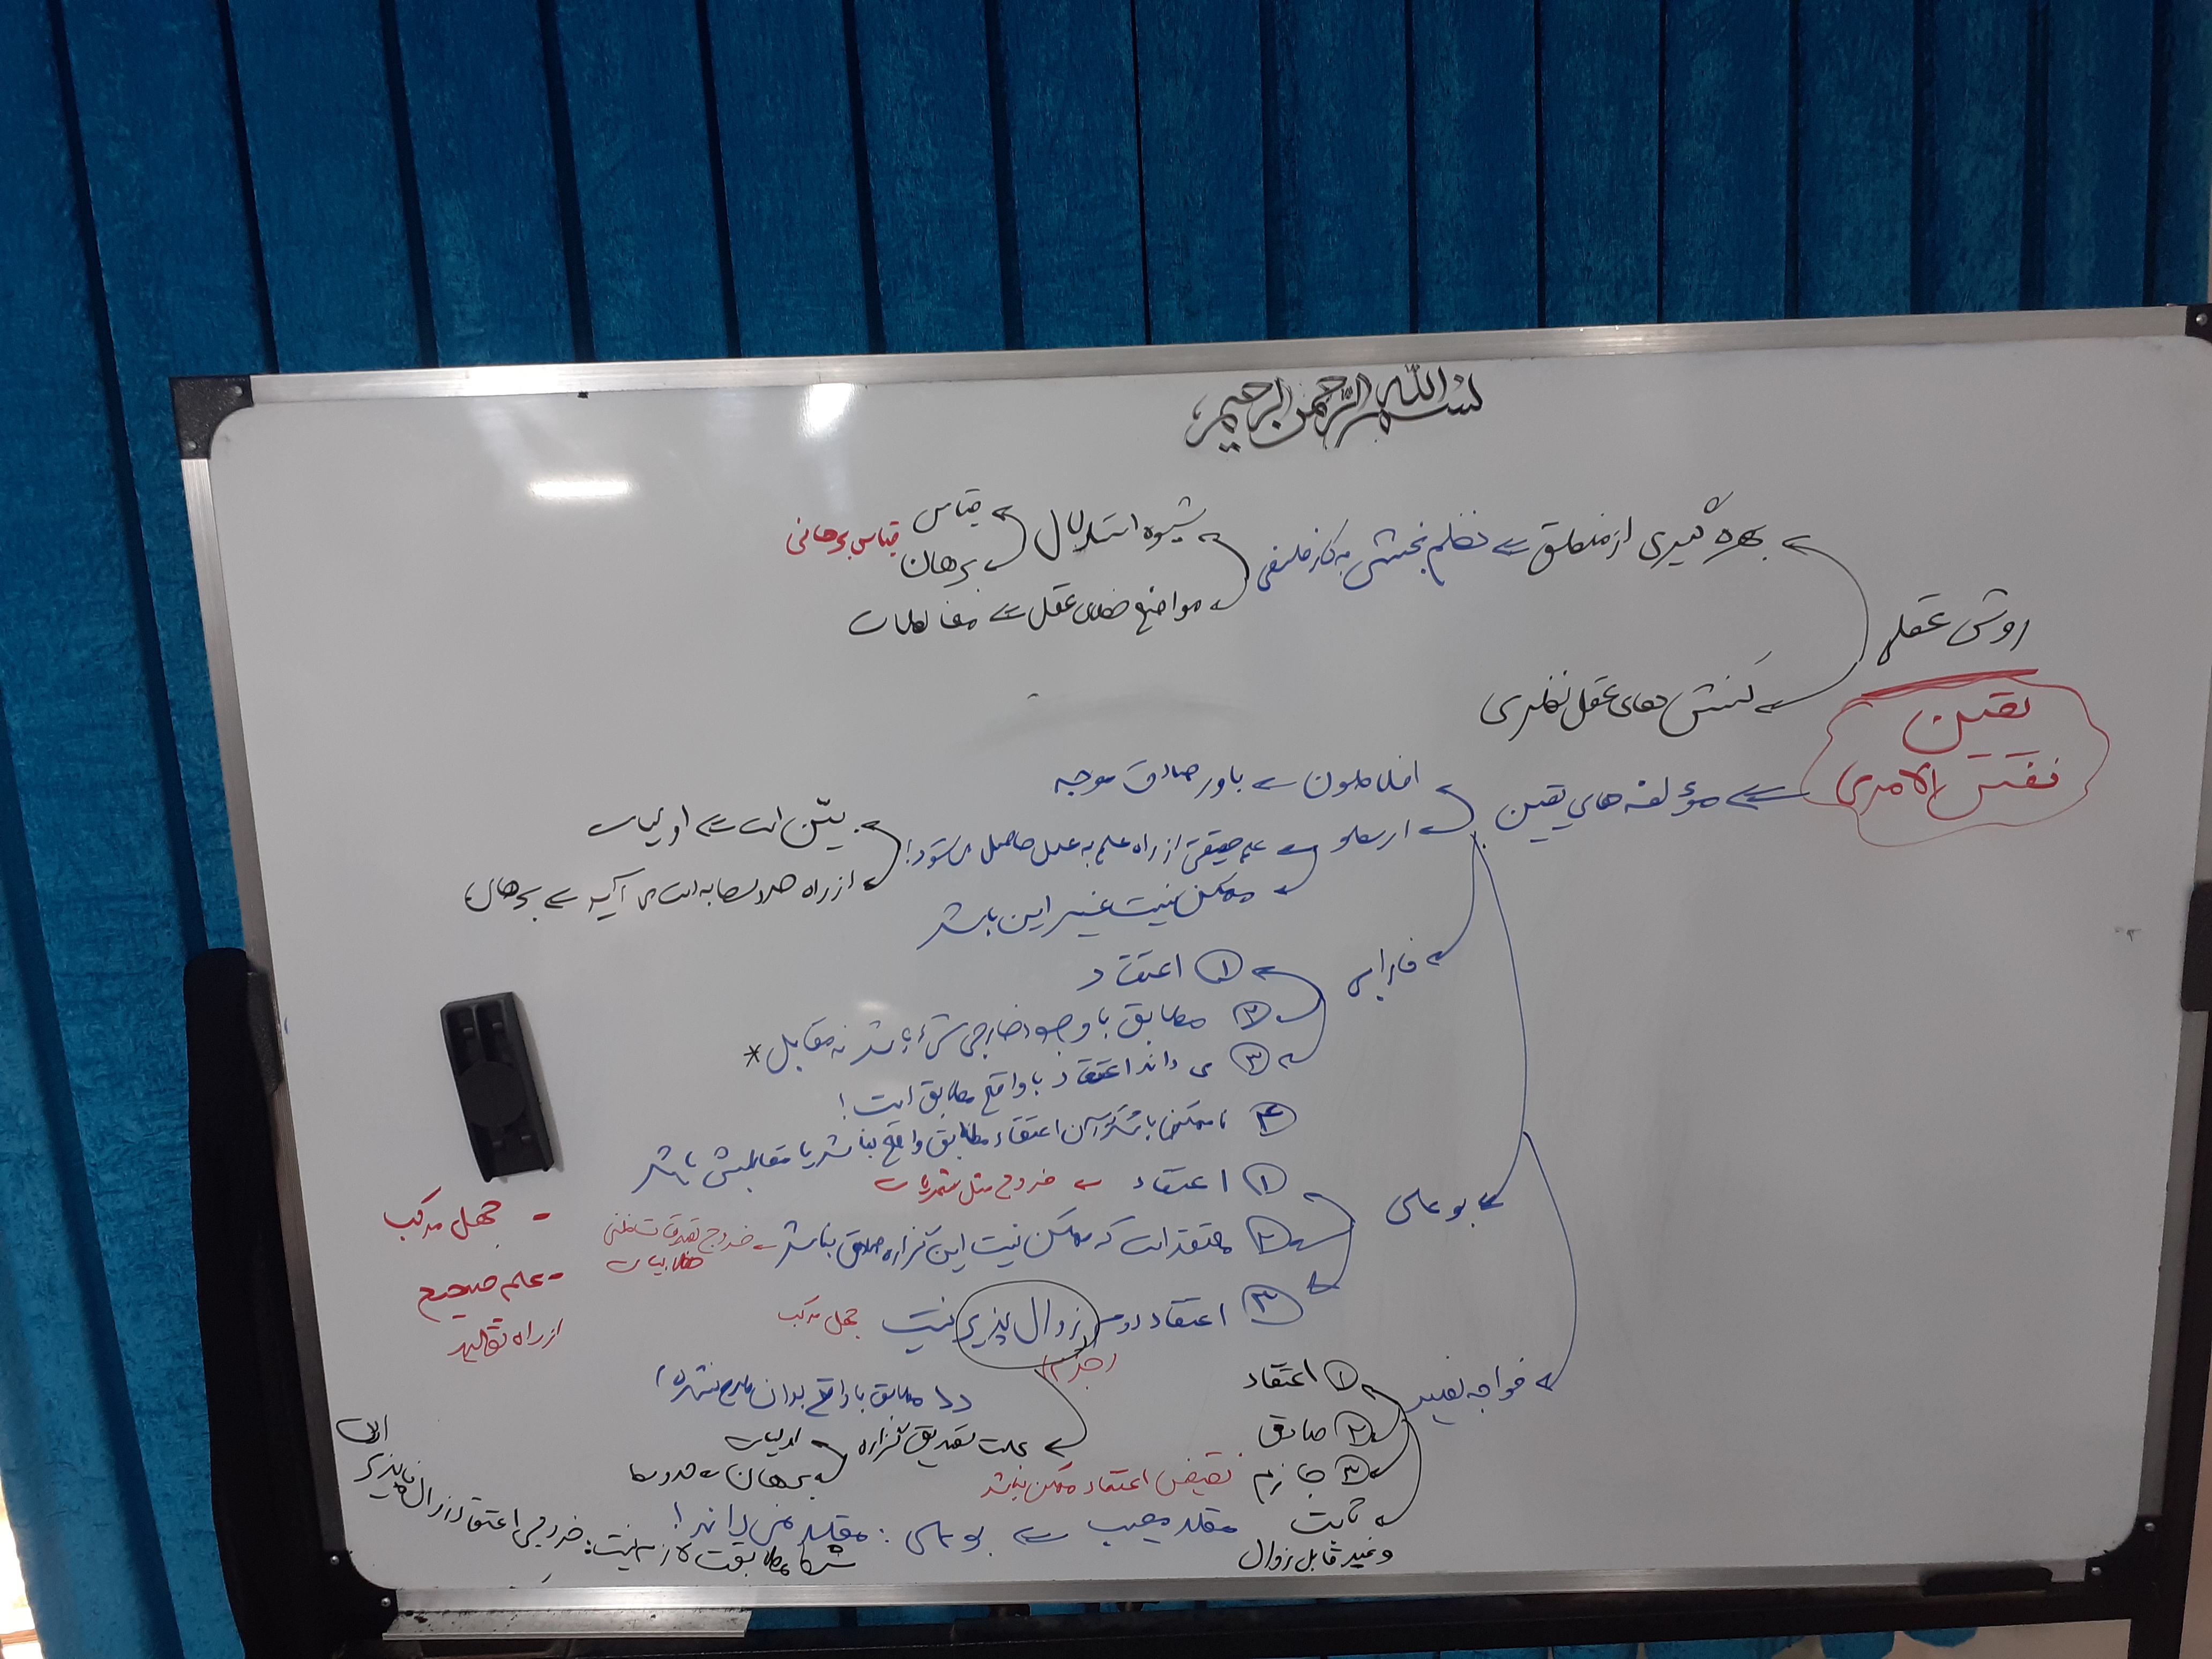 بسم الله الرحمن الرحیم
روش عقلی
بهره گیری از منطق
نظم بخشی به کار فلسفی
شیوه استدلال
قیاس
برهان
قیاس برهانی
مواضع خطای عقل
مغالطات
کنش های عقل نظری
یقین
نفس الامری
مؤلفه های یقین
افلاطون
باور صادق موجه
ارسطو
علم حقیقی از راه علم به علل حاصل می شود!
بیّن است
اولیات
از راه حد وسط به دست می آید
برهان
ممکن نیست غیر این باشد
فارابی
۱ اعتقاد
۲ مطابق با وجود خارجی شیء باشد نه مقابل *
۳ می داند اعتقاد با واقع مطابق است!
۴ ناممکن باشد که آن اعتقاد مطابق واقع نباشد یا مقابلش باشد
بوعلی
۱ اعتقاد
خروج مثل
۲ معتقد است که ممکن نیست این گزاره صادق نباشد
خروج تصدیقات ظنی
خطابیات
۳ اعتقاد دوم زوال پذیر نیست
جهل مرکب
(جزم)
- جهل مرکب
- علم صحیح
از راه تقلید
مطابق با واقع بودن طرح نشده
علت تصدیق گزاره
اولیات
برهان
حد وسط
خواجه نصیر
۱ اعتقاد
۲ صادق
۳ جازم
نقیض اعتقاد ممکن نباشد
ثابت
و غیر قابل زوال
مقلد مصیب
بوعلی: مقلد نمی داند!
شرط مطابقت لازم نیست: خروجی اعتقاد زوال ناپذیر
است